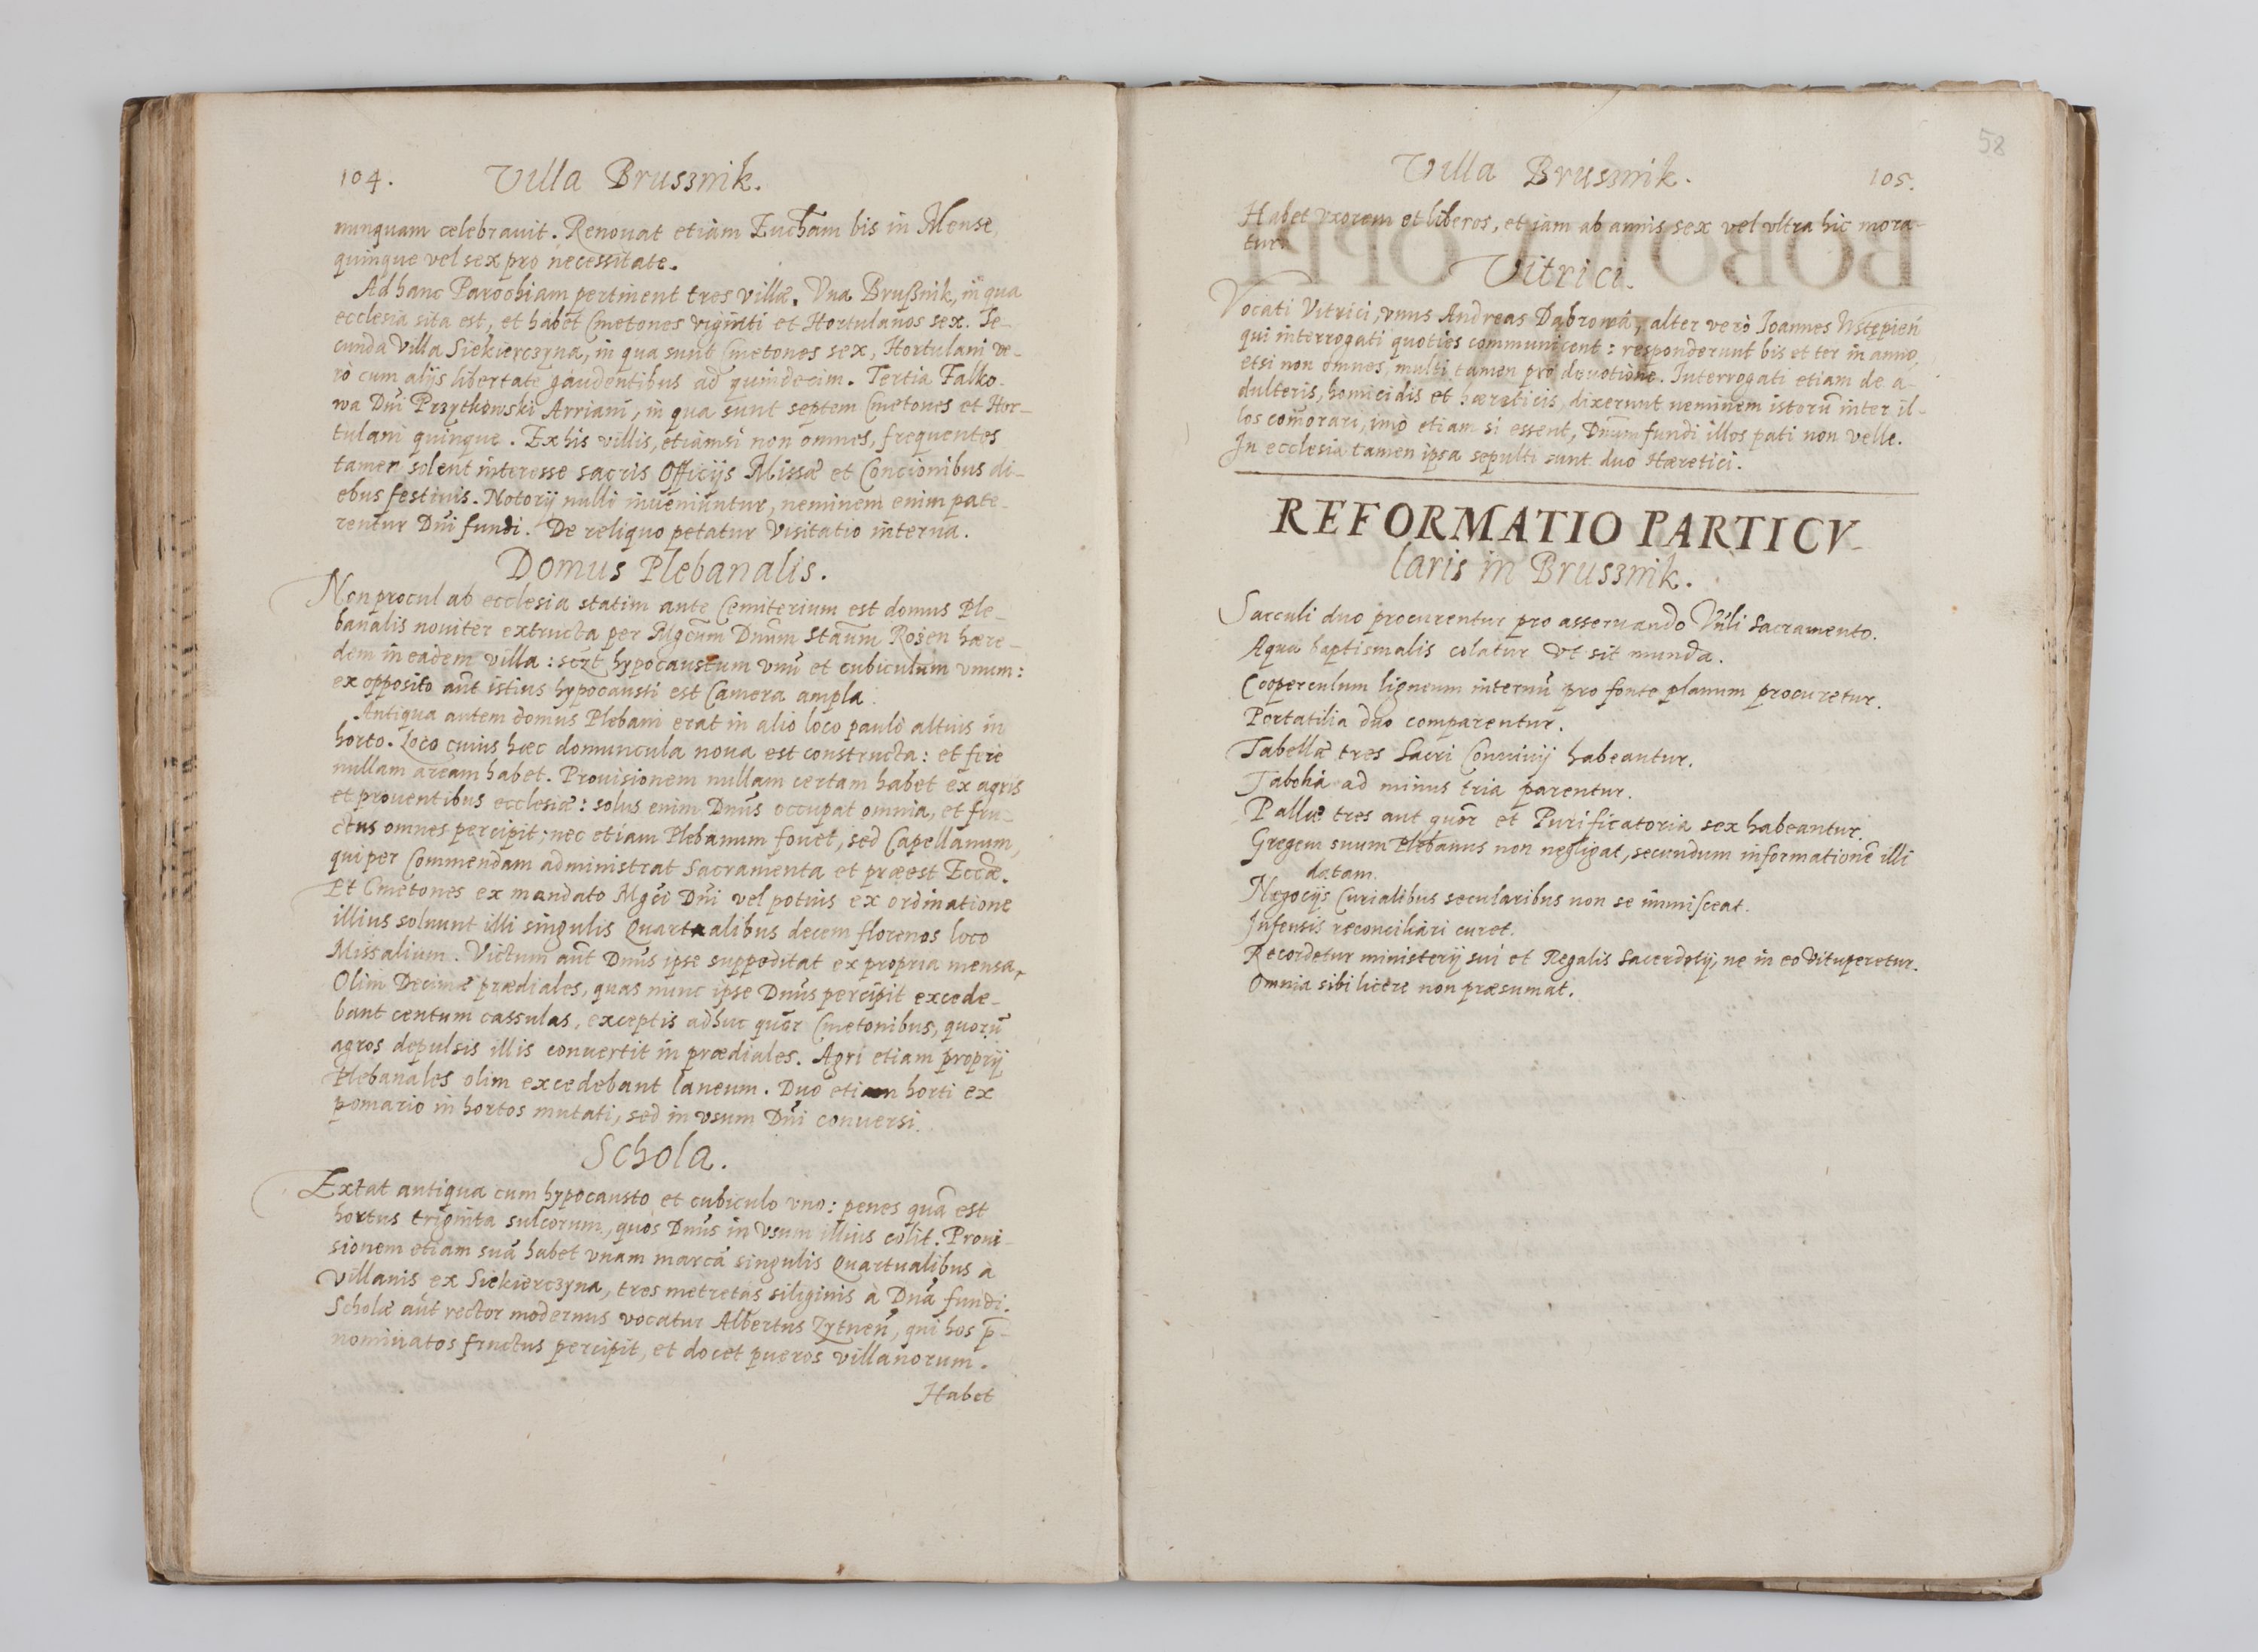 104. Villa Brusznik.
nunquam celebrauit. Renouat etiam Euch̃am bis in Mense,
quinque vel sex pro necessitate.
Ad hanc Parochiam pertinent tres villæ. Vna Brußnik, in qua
ecclesia sita est, et habet Cmetones viginti et Hortulanos sex. Se-
cunda Villa Siekierczyna, in qua sunt Cmetones sex, Hortulani ve-
rò cum alijs libertate gaudentibus ad quindecim. Tertia Falko-
wa Dñi Przytkowski Arriani, in qua sunt septem Cmetones et Hor-
tulani quinque. Ex his villis, etiamsi non omnes, frequentes
tamen solent interesse sacris Officijs Missæ et Concionibus di-
ebus festiuis. Notorij nulli inueniuntur, neminem enim pate-
rentur Dñi fundi. De reliquo petatur Visitatio interna.
Domus Plebanalis.
Non procul ab ecclesia statim ante Cemiterium est domus Ple-
banalis nouiter extructa per Mgcum Dnum Staum Rożen hære-
dem in eadem villa: hypocaustum vnũ et cubiculum vnum:
ex opposito aũt istius hypocausti est Camera ampla.
Antiqua autem domus Plebani erat in alio loco paulò altius in
horto. Loco cuius hæc domuncula noua est constructa: et fere
nullam aream habet. Prouisionem nullam certam habet ex agris
et prouentibus ecclesiæ: solus enim Dnũs occupat omnia, et fru-
ctus omnes percipit; nec etiam Plebanum fouet, sed Capellanum,
qui per Commendam administrat Sacramenta et præest Eccæ.
Et Cmetones ex mandato Mgci Dñi vel potius ex ordinatione
illius soluunt illi singulis Quartualibus decem florenos loco
Missalium. Victum aũt Dnũs ipse suppeditat ex propria mensa,
Olim Decimæ prædiales, quas nunc ipse Dnũs percipit excede-
bant centum cassulas, exceptis adhuc quõr Cmetonibus, quorũ
agros depulsis illis conuertit in prædiales. Agri etiam proprij
Plebanales olim excedebant laneum. Duo etiam horti ex
pomario in hortos mutati, sed in vsum Dñi conuersi.
Schola.
Extat antiqua cum hypocausto et cubiculo vno: penes quã est
hortus triginta sulcorum, quos Dnũs in Vsum illius colit. Proui-
sionem etiam suã habet vnam marcã singulis Quartualibus à
villanis ex Siekierczyna, tres metretas siliginis à Dnã fundi.
Scholæ aũt rector modernus vocatur Albertus Zytneń, qui hos p̃-
nominatos fructus percipit, et docet pueros villanorum.
Habet
58
Villa Brusznik. 105.
Habet vxorem et liberos, et iam ab annis sex vel vltra hic mora-
tur.
Vitrici.
Vocati Vitrici, vnus Andreas Dąbrowa, alter verò Joannes Wstępień
qui interrogati quoties communicent: responderunt bis et ter in anno,
etsi non omnes, multi tamen pro deuotione. Interrogati etiam de a-
dulteris, homicidis et hæreticis, dixerunt neminem istorũ inter il-
los com̃orari, imò etiam si essent, Dnum fundi illos pati non velle.
In ecclesia tamen ipsa sepulti sunt duo Hæretici.
REFORMATIO PARTICV-
laris in Brusznik.
Sacculi duo procurentur pro asseruando Vñli Sacramento.
Aqua baptismalis colatur vt sit munda.
Cooperculum ligneum internũ pro fonte planum procuretur.
Portatilia duo comparentur.
Tabellæ tres Sacri Conuiuij habeantur.
ad minus tria parentur.
Pallæ tres aut quõr et Purificatoria sex habeantur.
Gregem suum Plebanus non negligat, secundum informationẽ illi
datam.
Negocijs Curialibus secularibus non se immisceat.
Infensis reconciliari curet.
Recordetur ministerij sui et Regalis Sacerdotij, ne in eo Vituperetur.
Omnia sibi licere non præsumat.